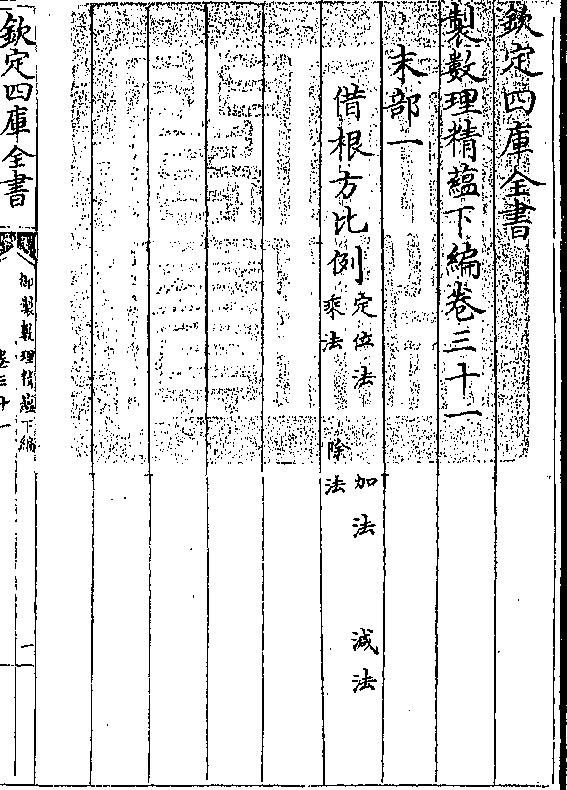 欽定四庫全書
製數理精蘊下編卷三十一
末部一
借根方比例
定位法 加法 減法
乘法 除法
欽定四庫全書
御製數理精蘊下編
卷三十一
一